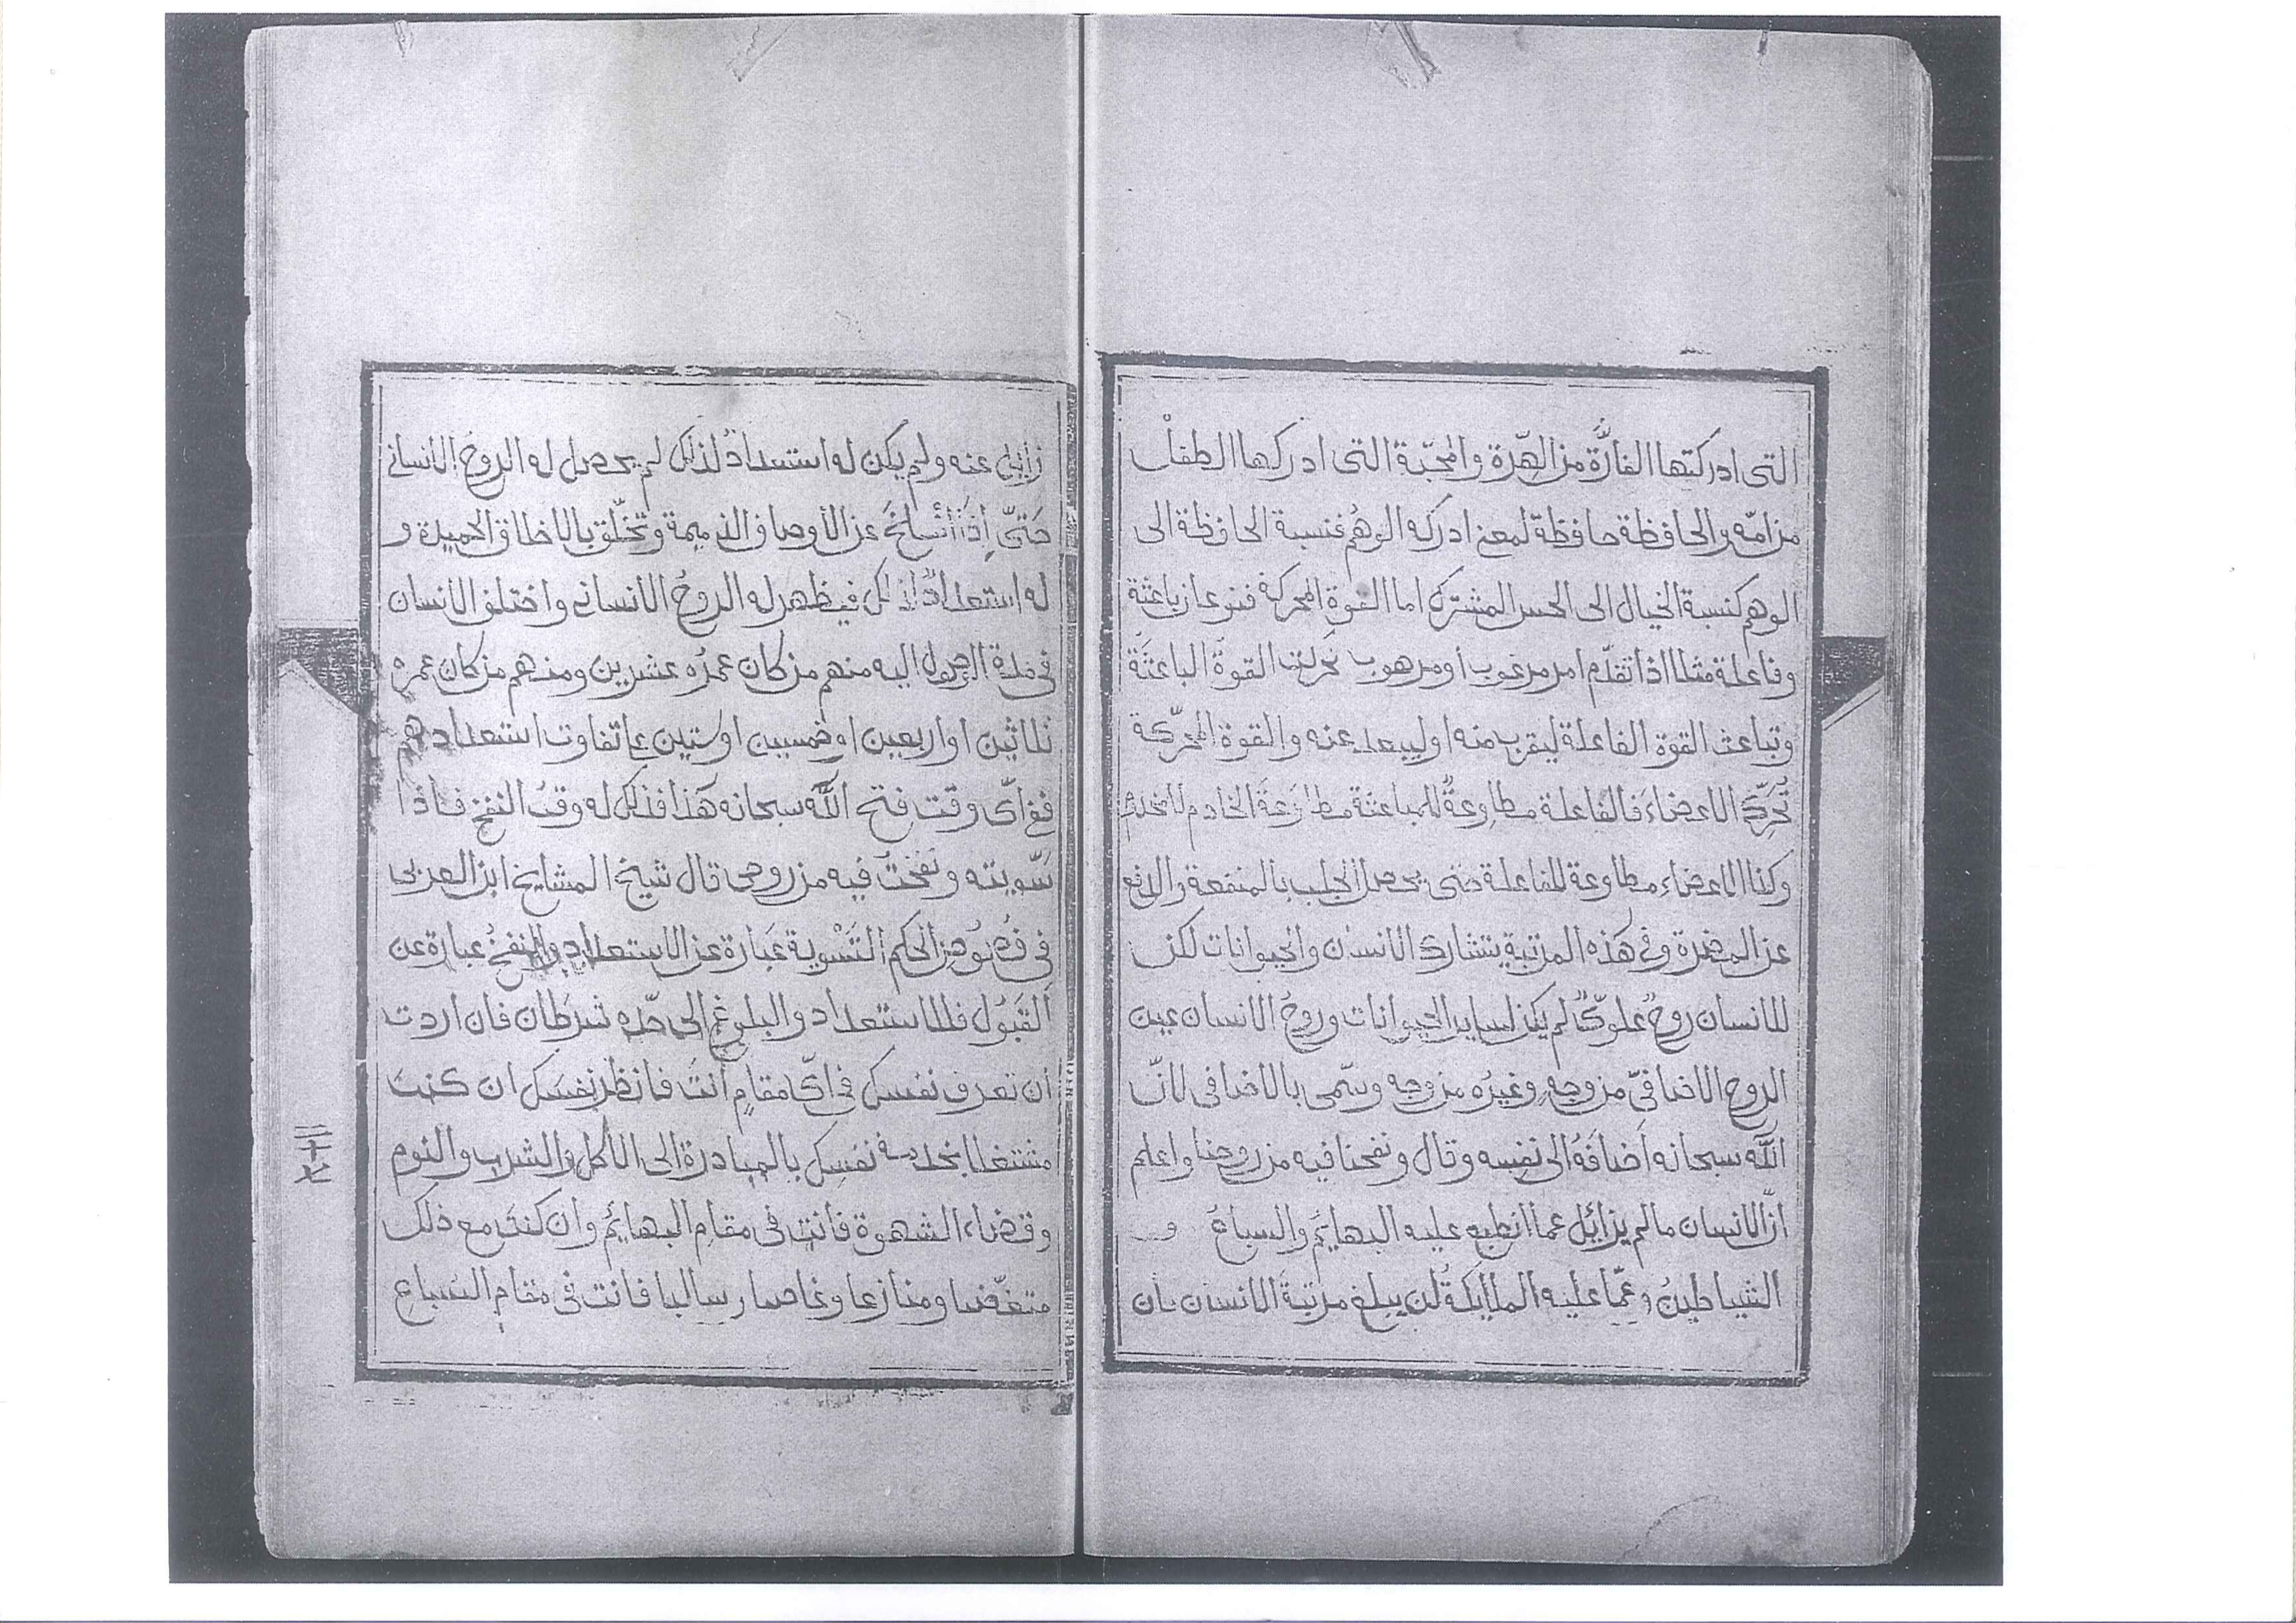 التى ادركتها الفارّة من الهِرّة والمحبّة التى ادركها الطفل
من امّه والحافظة حافظة لمعنى ادركه الوهم فنسبة الحافظة الى
الوهم كنسبة الخيال الى الحس المشترك اما القوة المحركة فنوعان باعثة
وفاعلة مثلا اذا تقدّم امر مرغوب او مرهوب تحركت القوة الباعثة
وتباعث القوة الفاعلة ليقرب منه او ليبعد عنه والقوة المحرّكة
تحرّك الاعضاء فالفاعلة مطاوعة للباعثة مطاوعة الخادم للمخدوم
وكذا الاعضاء مطاوعة للفاعلة حتى يحصل الجلب بالمنفعة والدفع
عن المضرة وفى هذه المرتبة يتشارك الانسان والحيوانات لكن
للانسان روحٌ علوىٌّ لم يكن لساير الحيوانات وروح الانسان عين
الروح الاضافىّ من وجهٍ وغيرُه من وجه وسمّى بالاضافى لانّ
اللّه سبحانه اضافهُ الى نفسه وقال ونفخنا فيه من روحنا واعلم
انّ الانسان مالم يزائل عما انطبع عليه البهايم والسباعُ و
الشياطينُ وعمّا عليه الملايكة لن يبلغ مرتبة الانسان بان
زايل عنه ولم يكن له استعدادٌ لذلك لم يحصل له الروح الانسانى
حتىّ إذا انسلخ عن الأوصاف الذميمة وتخلّق بالاخلاق الحميدة و
له استعدادٌ لذلك فيظهر له الروحُ الانسانى واختلف الانسان
فى مدة الوصول اليه منهم من كان عمرُه عشرين ومنهم من كان عمرُه
ثلاثين او اربعين او خمسين او ستين على تفاوت استعدادهم
ففى اىّ وقت فتح اللّه سبحانه هذا فذلك له وقتُ النفخ فاذا
سّويته ونفختُ فيه من روحى قال شيخ المشايخ ابن العربى
فى فُصُوص الحكم التّسْوية عبارة عن الاستعداد والنفخُ عبارة عن
القَبُول فللاستعداد والبلوغِ الى حدّه شرطان فان اردت
ان تعرف نفسك فى اىّ مقامٍ أنتَ فانظر نفسَك ان كنتَ
مشتغلا بخدمة نفسِك بالمبادرة الى الأكل والشرب والنوم
وقضاء الشهوة فانت فى مقامِ البهايم وان كنتَ مع ذلك
متغضّبا ومنازعا وغاصبا وسالبا فانت فى مقام السباع